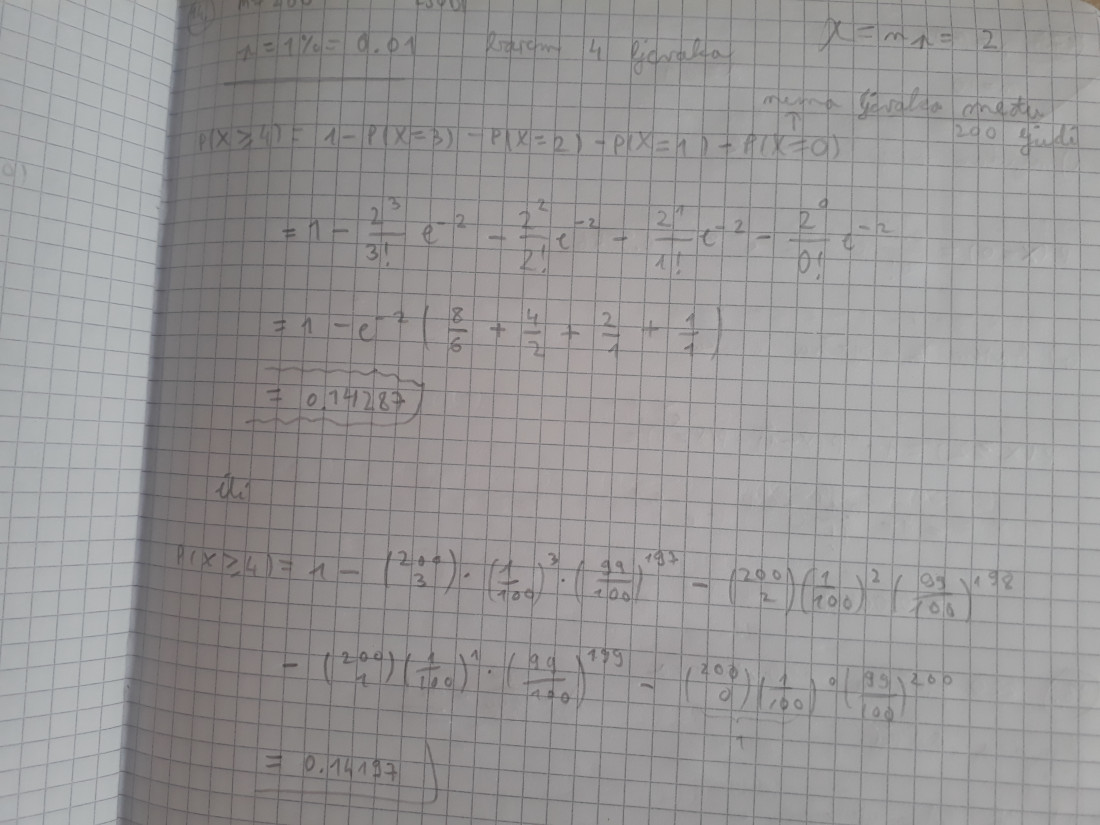 p = 1% = 0.01 barem 4 ljevaka x = np = 2
nema ljevaka među
200 ljudi
P(X ≥ 4) = 1 - P(X=3) - P(X=2) - P(X=1) - P(X=0)
= 1 - 2³/3! e⁻² - 2²/2! e⁻² - 2¹/1! e⁻² - 2⁰/0! e⁻²
= 1 - e⁻² ( 8/6 + 4/2 + 2/1 + 1/1 )
= 0.14287
ili
P(X ≥ 4) = 1 - (200 3) · (1/100)³ · (99/100)¹⁹⁷ - (200 2) (1/100)² (99/100)¹⁹⁸
- (200 1) (1/100)¹ · (99/100)¹⁹⁹ - (200 0) (1/100)⁰ (99/100)²⁰⁰
1
= 0.14197